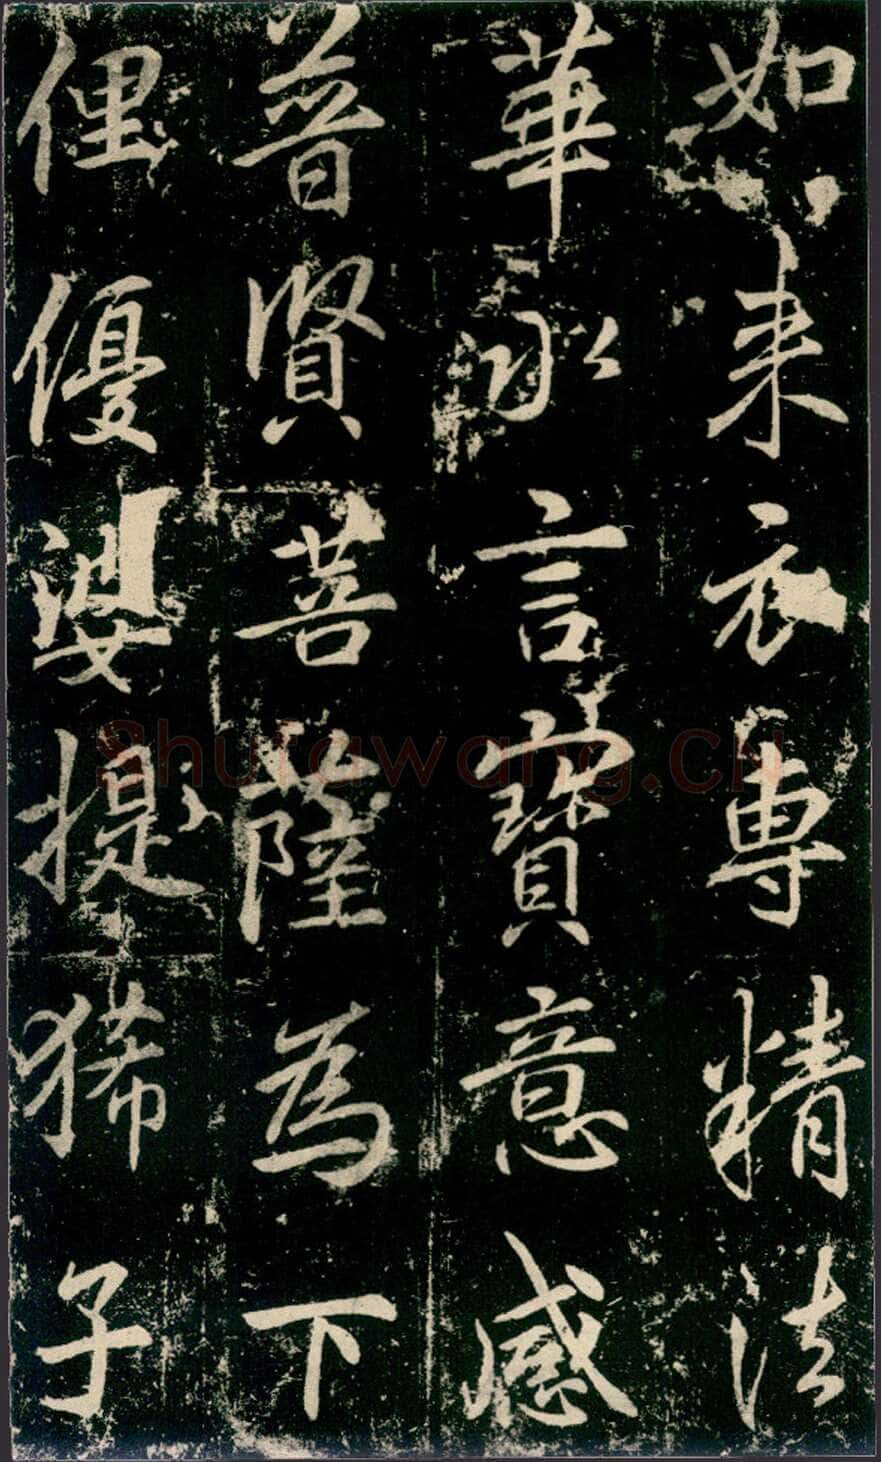 如来衣專精法
華永言寶意感
普賢菩薩為下
俚優婆提狶子
Shufawang.cn